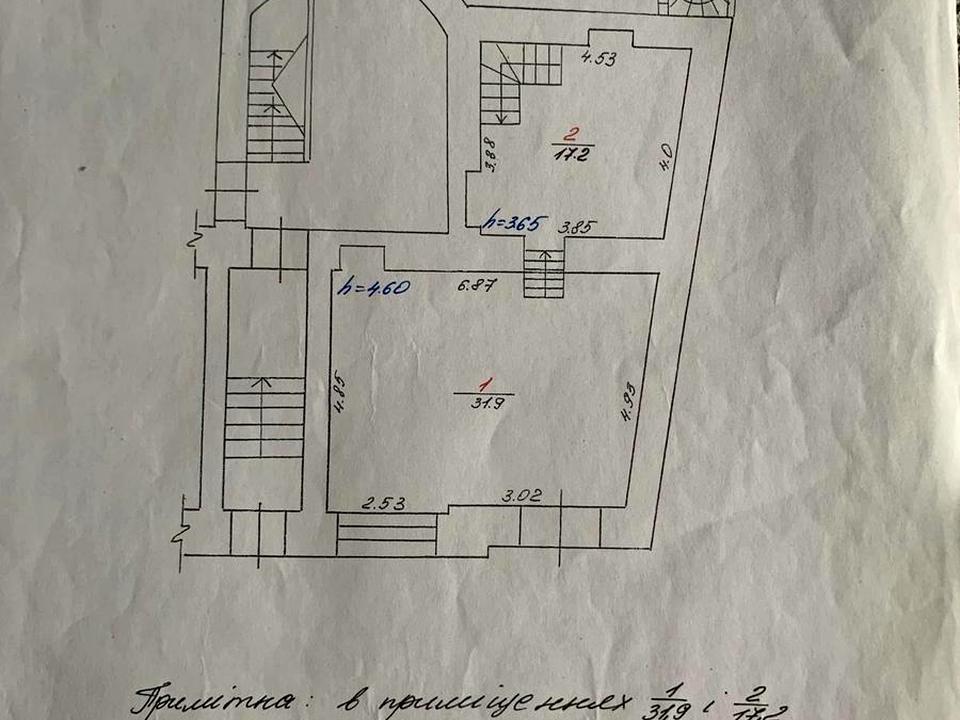 4.53
2
17.2
3.88
4.0
h=3.65
3.85
h=4.60
6.87
1
31.9
4.85
4.93
2.53
3.02
Примітка: в приміщеннях 1/31,9 і 2/17,2